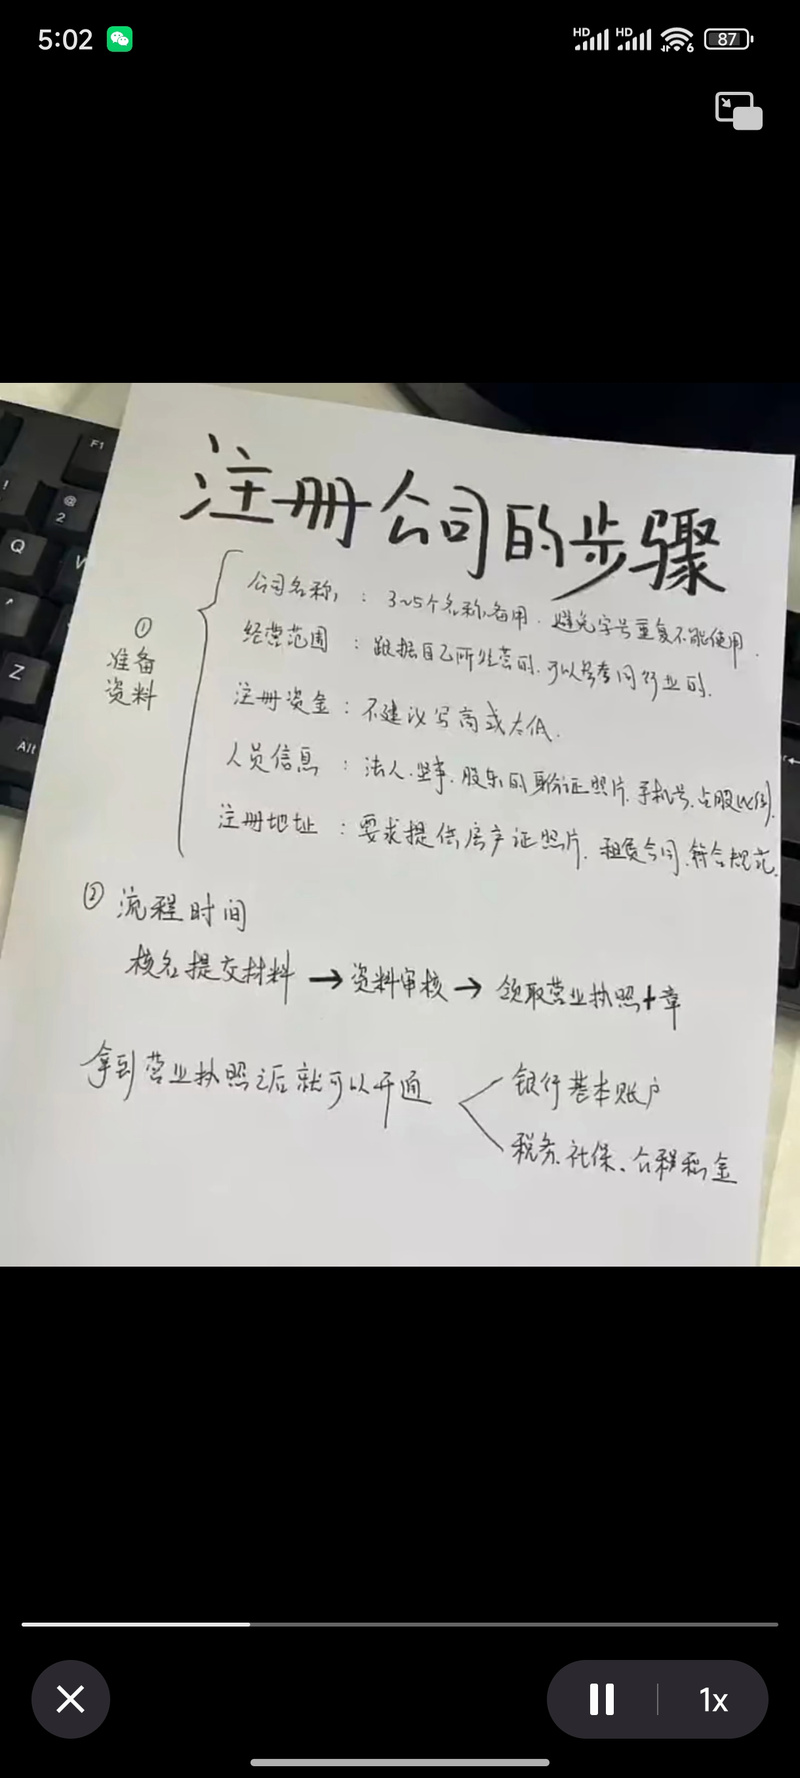 5:02
HD HD 6 87
F1
!
@
2
Q
W
Z
Alt
注册公司的步骤
① 准备资料
公司名称, : 3~5个名称备用. 避免字号重复不能使用.
经营范围 : 跟据自己所经营的, 可以参考同行业的.
注册资金 : 不建议写高或太低.
人员信息 : 法人.监事.股东的身份证照片.手机号.占股比例.
注册地址 : 要求提供房产证照片. 租赁合同.符合规范.
② 流程时间
核名提交材料 → 资料审核 → 领取营业执照+章
拿到营业执照之后就可以开通
银行基本账户
税务.社保、公积金
1x